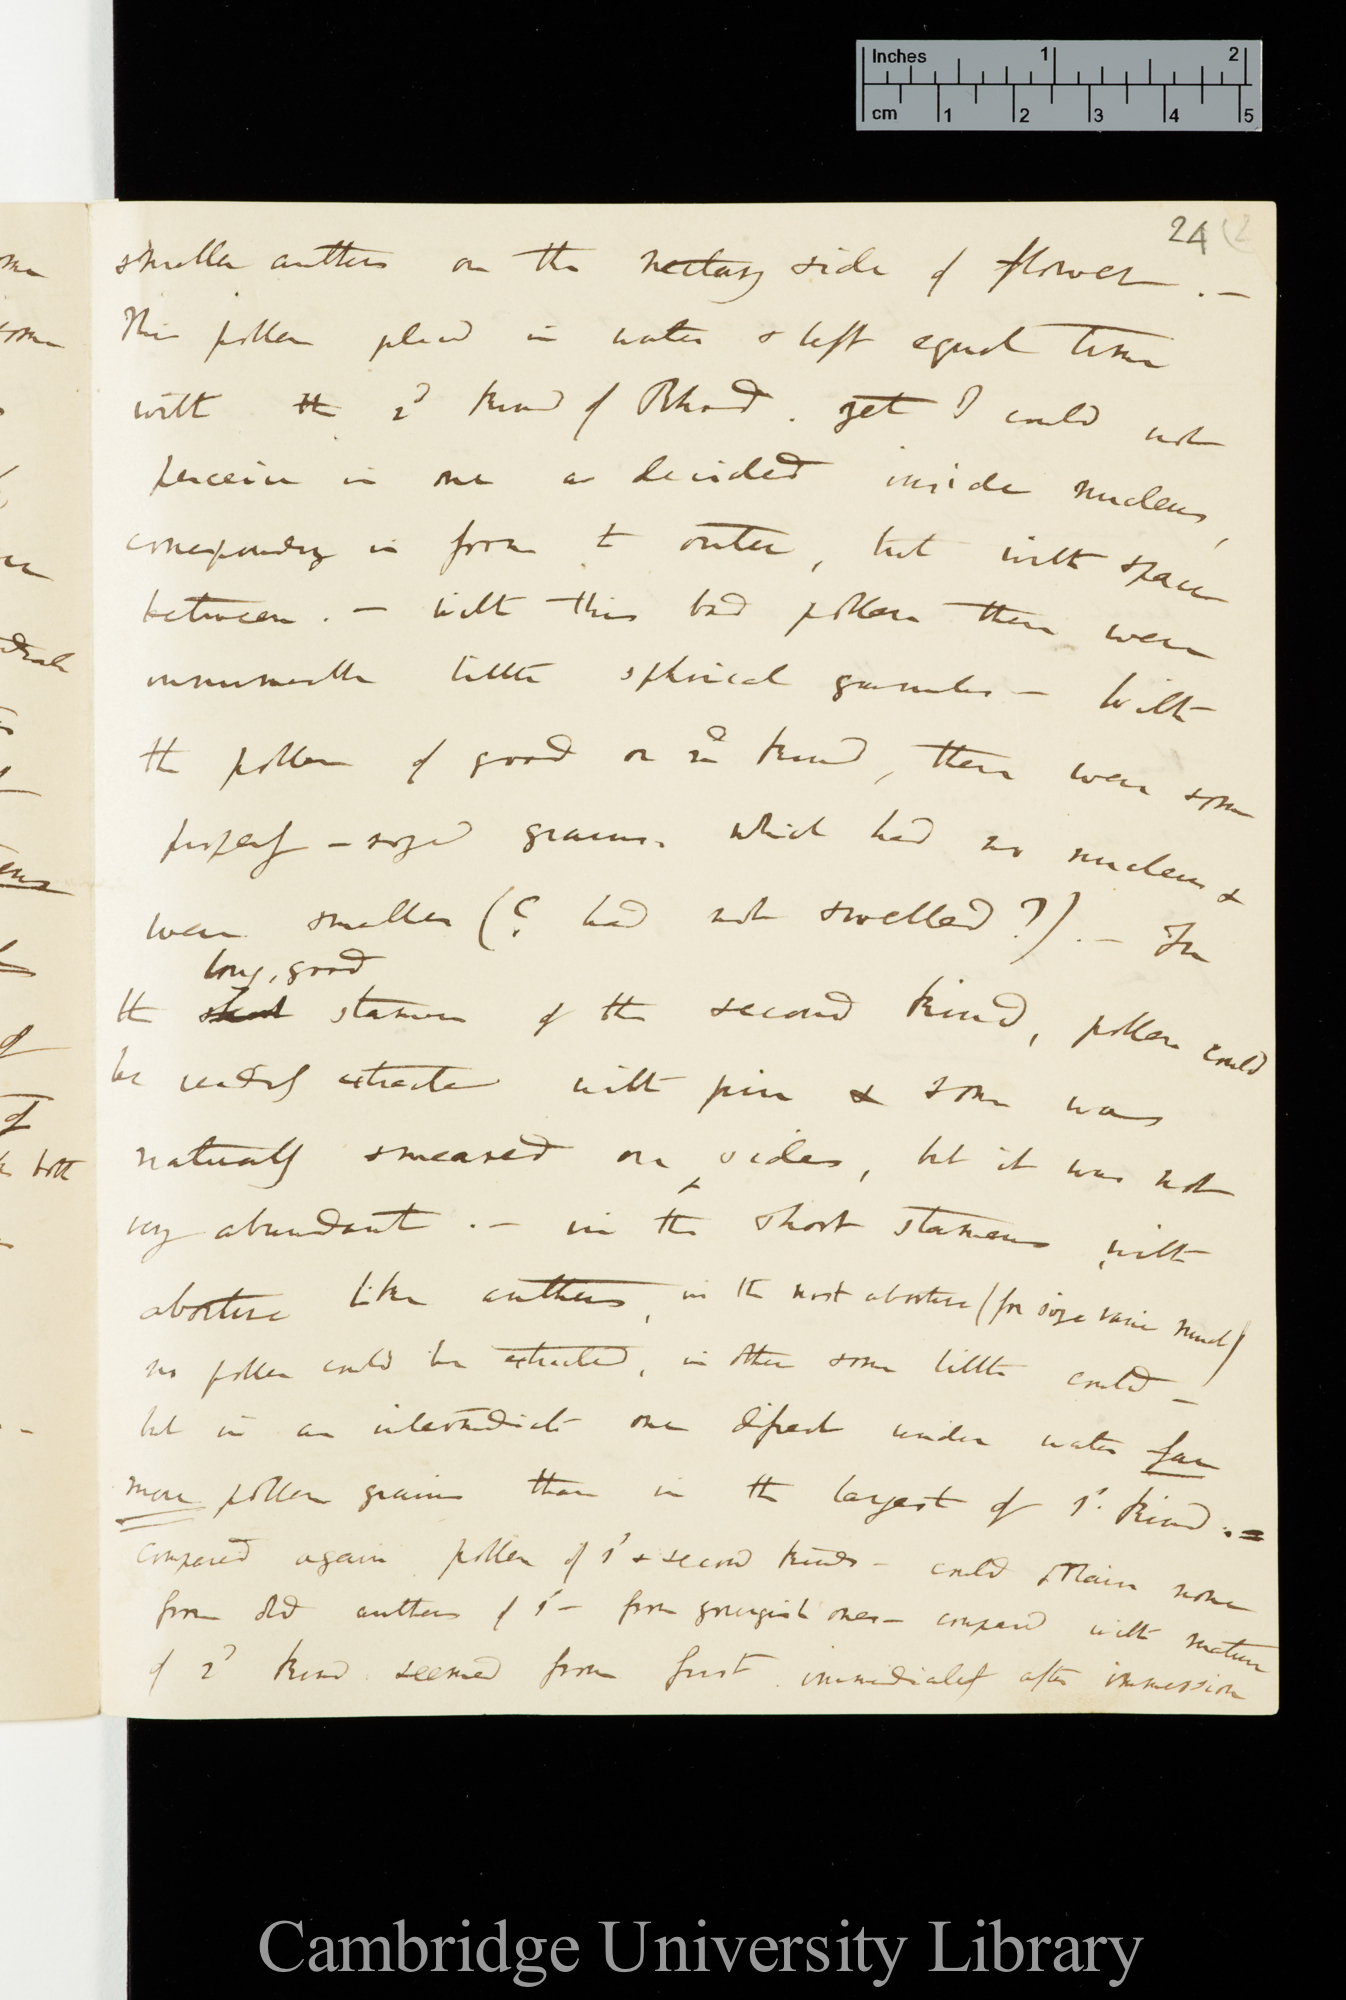 Inches 1 2
cm 1 2 3 4 5
24 (2
smaller anthers on the nectary side of flower. —
This pollen placed in water & left equal time
with the 2d kind of Rhod. yet I could not
perceive in one a decided inside nucleus,
corresponding in form to outer, but with space
between. — With this bad pollen there were
innumerable little spherical granules — With
the pollen of good or 2nd kind, there were some
properly-sized grains. which had no nucleus &
were smaller (? had not swelled ?). — In
long, good
the short stamens of the second kind, pollen could
be readily extracted with pin & some was
naturally smeared on sides, but it was not
very abundant. — in the short stamens with
abortive like anthers, in the most abortive (for size varies much)
no pollen could be extracted, in other some little could —
but in an intermediate one dissected under water far
more pollen grains than in the largest of 1st kind. =
Compared again pollen of 1st & second kinds — could obtain none
from old anthers of 1st — from youngish ones — compared with mature
of 2d kind seemed from first immediately after immersion
both
Cambridge University Library